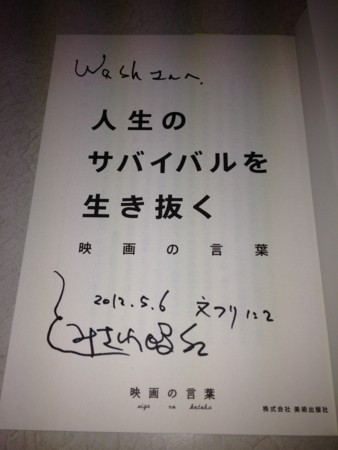 Wash さんへ.
人生の
サバイバルを
生き抜く
映画の言葉
2012.5.6 文フリにて
映画の言葉
eiga no kotoba
株式会社 美術出版社